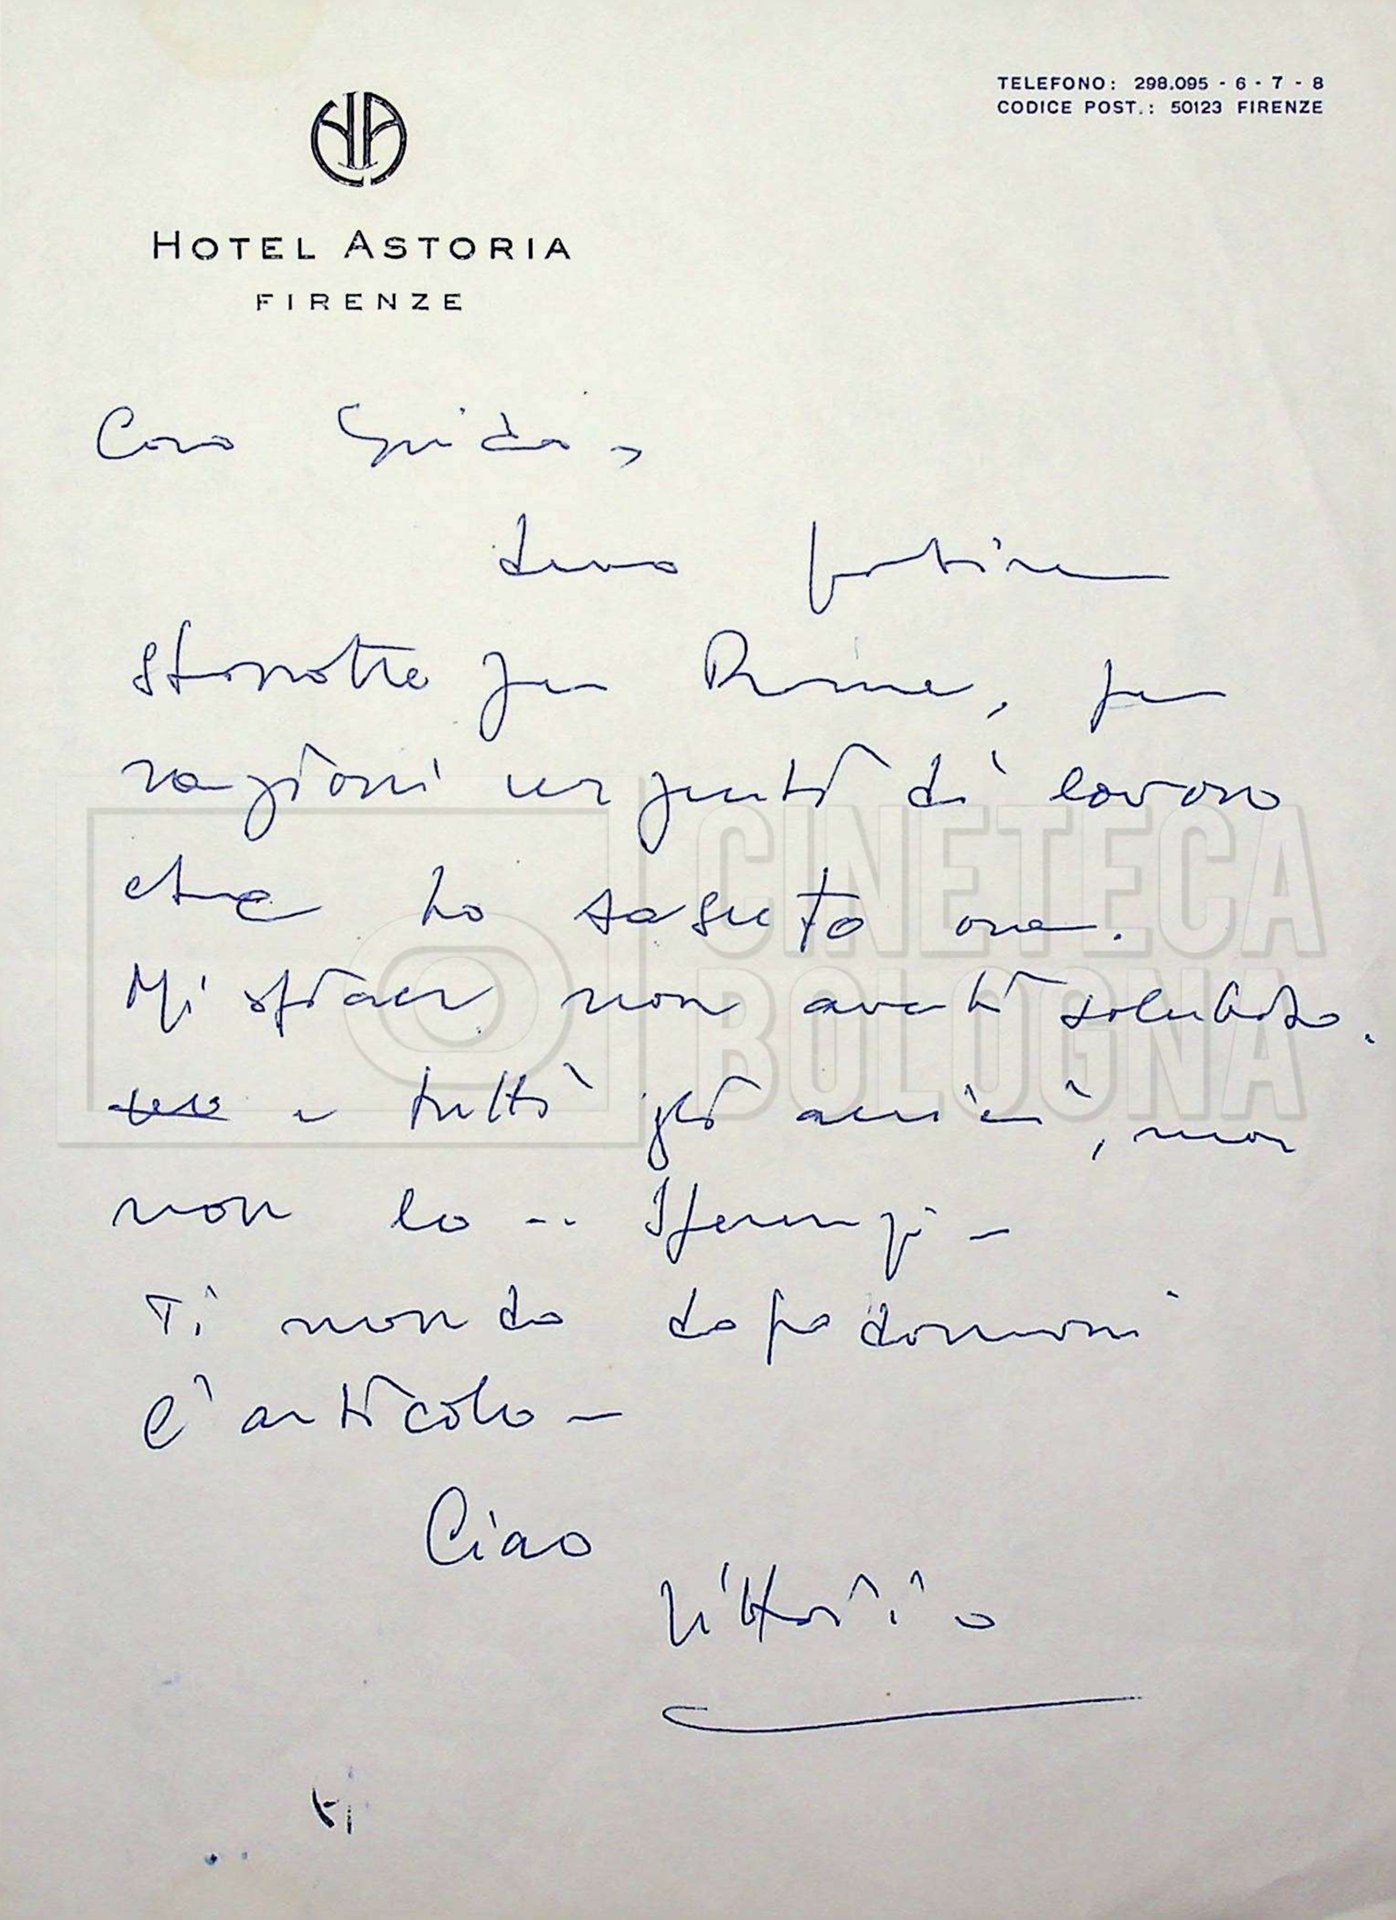 TELEFONO: 298.095 - 6 - 7 - 8
CODICE POST.: 50123 FIRENZE
HA
HOTEL ASTORIA
FIRENZE
Caro Guido,
devo partire
stanotte per Roma, per
ragioni urgenti di lavoro
che ho saputo ora.
Mi spiace non averti salutato.
e tutti gli amici, ma
non lo --
Ti mando dopodomani
l'articolo -
Ciao
Vittorio
ti
CINETECA
BOLOGNA